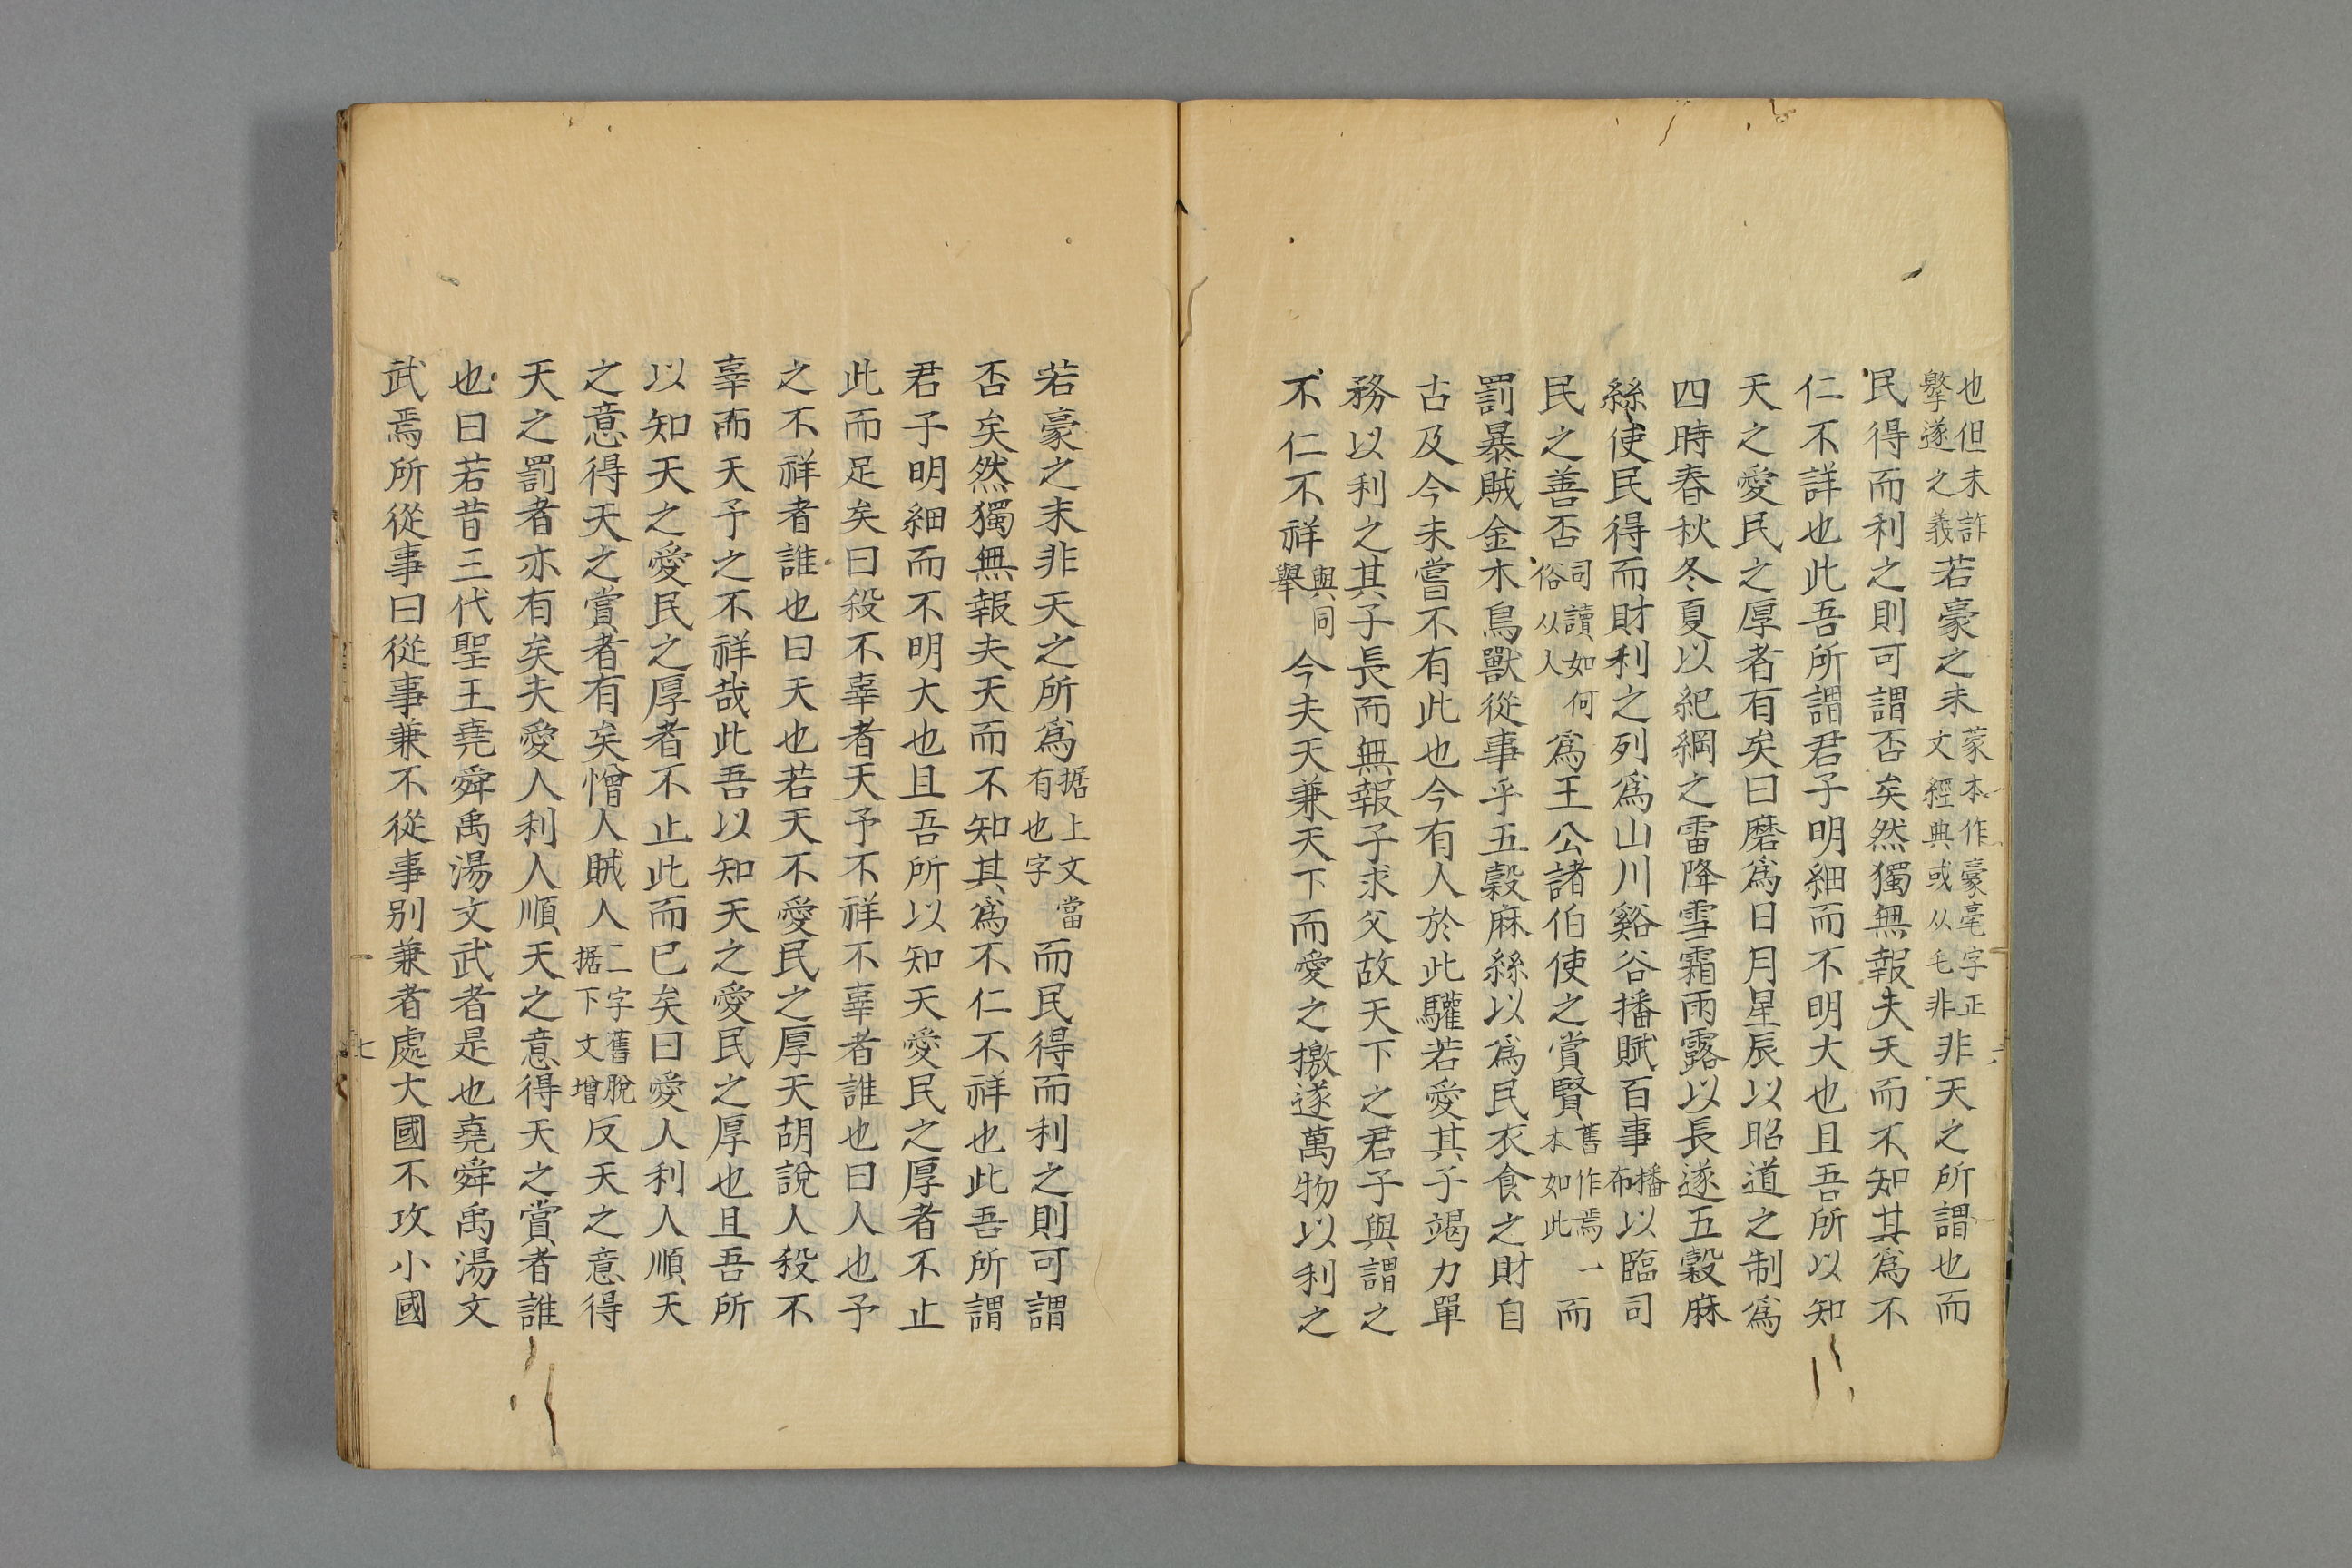 也但未詐擊遂之義若豪之末䝉本作豪毫字正文經典或从毛非非天之所謂也而
民得而利之則可謂否矣然獨無報夫天而不知其爲不
仁不詳也此吾所謂君子明細而不明大也且吾所以知
天之愛民之厚者有矣曰磨爲日月星辰以昭道之制爲
四時春秋冬夏以紀綱之雷降雪霜雨露以長遂五穀麻
絲使民得而財利之列爲山川谿谷播賦百事播布以臨司
民之善否司讀如何俗从人爲王公諸伯使之賞賢舊作焉一本如此而
罰暴賊金木鳥獸從事乎五穀麻絲以爲民衣食之財自
古及今未嘗不有此也今有人於此驩若愛其子竭力單
務以利之其子長而無報子求父故天下之君子與謂之
不仁不祥與同舉今夫天兼天下而愛之撽遂萬物以利之
若豪之末非天之所爲据上文當有也字而民得而利之則可謂
否矣然獨無報夫天而不知其爲不仁不祥也此吾所謂
君子明細而不明大也且吾所以知天愛民之厚者不止
此而足矣曰殺不辜者天予不祥不辜者誰也曰人也予
之不祥者誰也曰天也若天不愛民之厚天胡說人殺不
辜而天予之不祥哉此吾以知天之愛民之厚也且吾所
以知天之愛民之厚者不止此而已矣曰愛人利人順天
之意得天之賞者有矣憎人賊人二字舊脫据下文增反天之意得
天之罰者亦有矣夫愛人利人順天之意得天之賞者誰
也曰若昔三代聖王堯舜禹湯文武者是也堯舜禹湯文
武焉所從事曰從事兼不從事别兼者處大國不攻小國
七